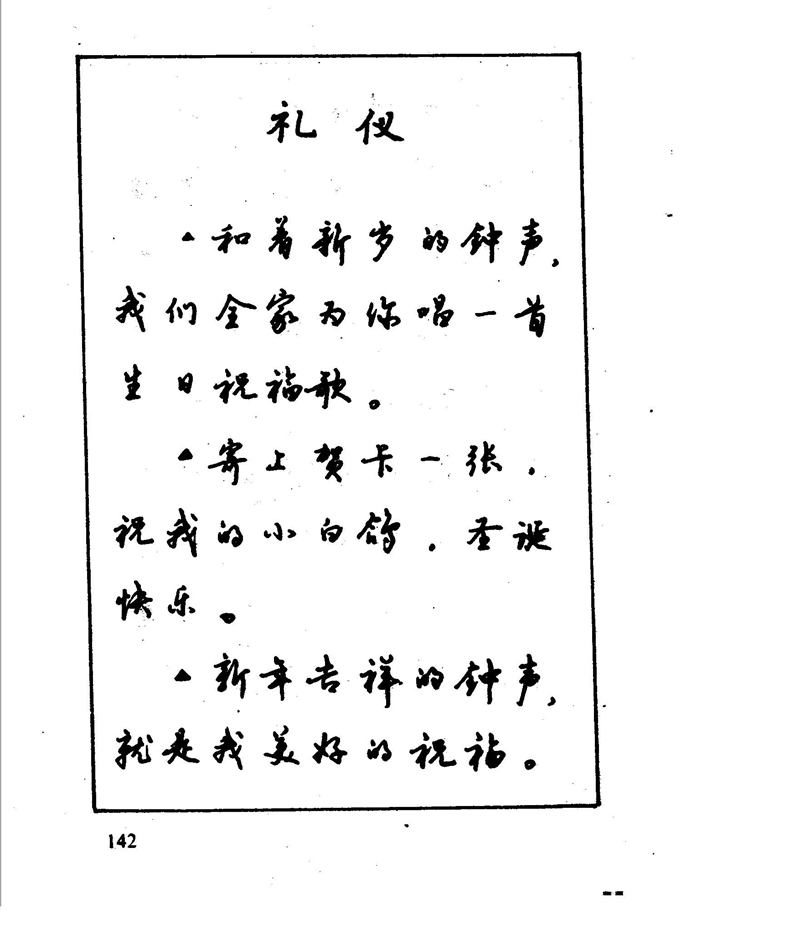 礼仪
▲和着新岁的钟声,
我们全家为你唱一首
生日祝福歌。
▲寄上贺卡一张,
祝我的小白鸽,圣诞
快乐。
▲新年吉祥的钟声,
就是我美好的祝福。
142